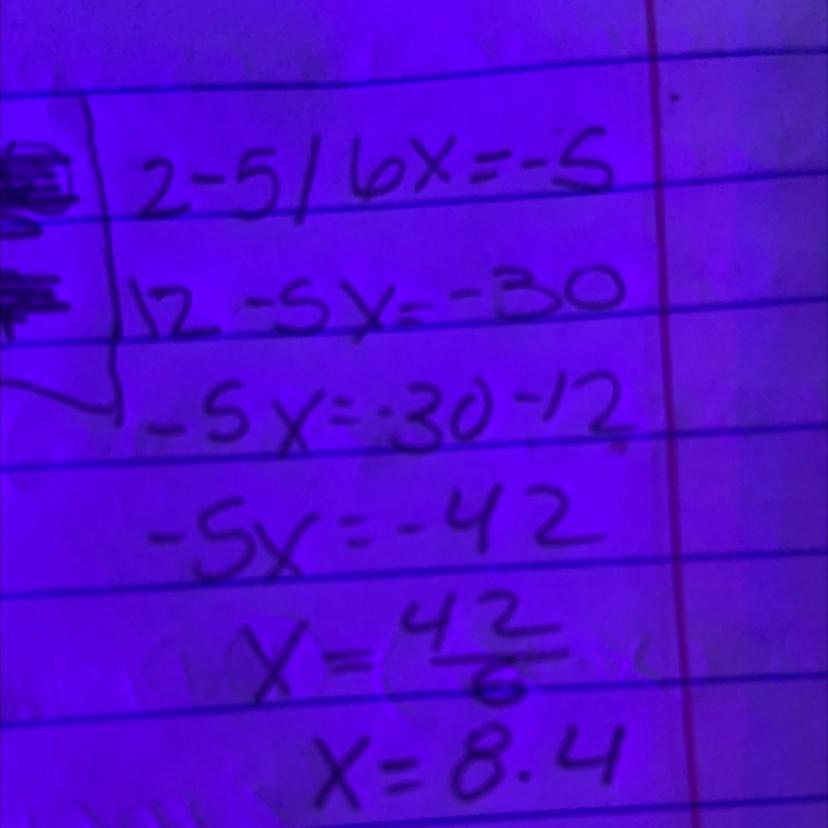 2-5/6x=-5
12-5x=-30
-5x=-30-12
-5x=-42
x=42/6
x=8.4